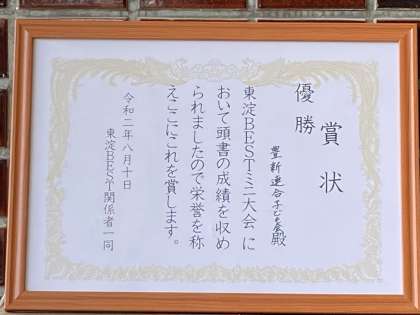 賞状
優勝
豊新連合子ども会殿
東淀BESTミニ大会に
おいて頭書の成績を収め
られましたので栄誉を称
えここにこれを賞します。
令和二年八月十日
東淀BEST関係者一同